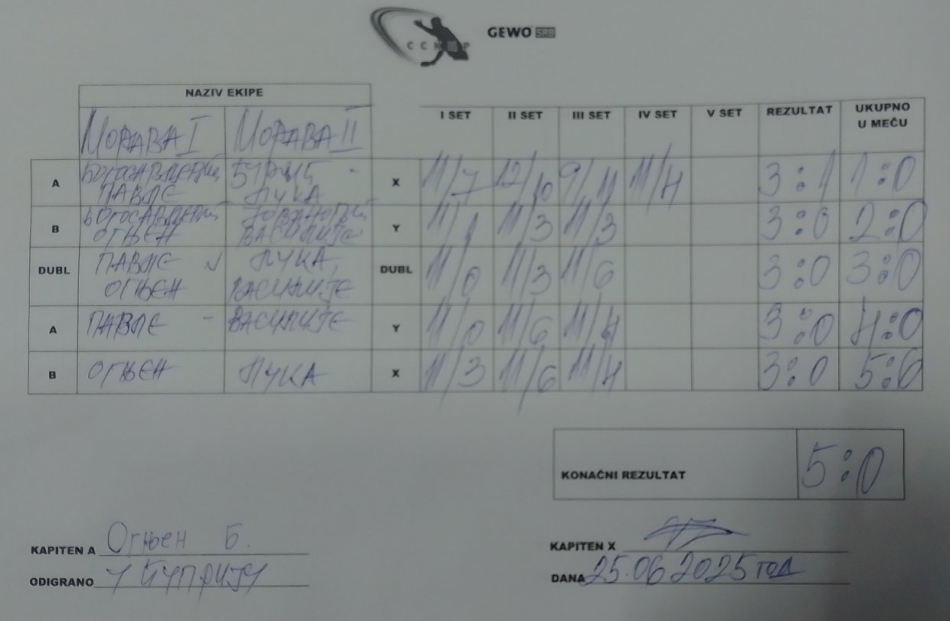 ССНЕР GEWO SRB
NAZIV EKIPE
I SET II SET III SET IV SET V SET REZULTAT UKUPNO U MEČU
МОРАВА I МОРАВА II
A БОГОСАВЉЕВИЋ ПАВЛЕ ЂУРИЋ ЛУКА X 11/7 12/10 9/11 11/4 3:1 1:0
B БОГОСАВЉЕВИЋ ОГЊЕН ВАСИЛИЈЕ Y 11/1 11/3 11/3 3:0 2:0
DUBL ПАВЛЕ ОГЊЕН ЛУКА ВАСИЛИЈЕ DUBL 11/0 11/3 11/6 3:0 3:0
A ПАВЛЕ - ВАСИЛИЈЕ Y 11/0 11/6 11/4 3:0 4:0
B ОГЊЕН ЛУКА X 11/3 11/6 11/4 3:0 5:0
KONAČNI REZULTAT 5:0
KAPITEN A Огњен Б. KAPITEN X
ODIGRANO У ЋУПРИЈИ DANA 25.06 2025 год